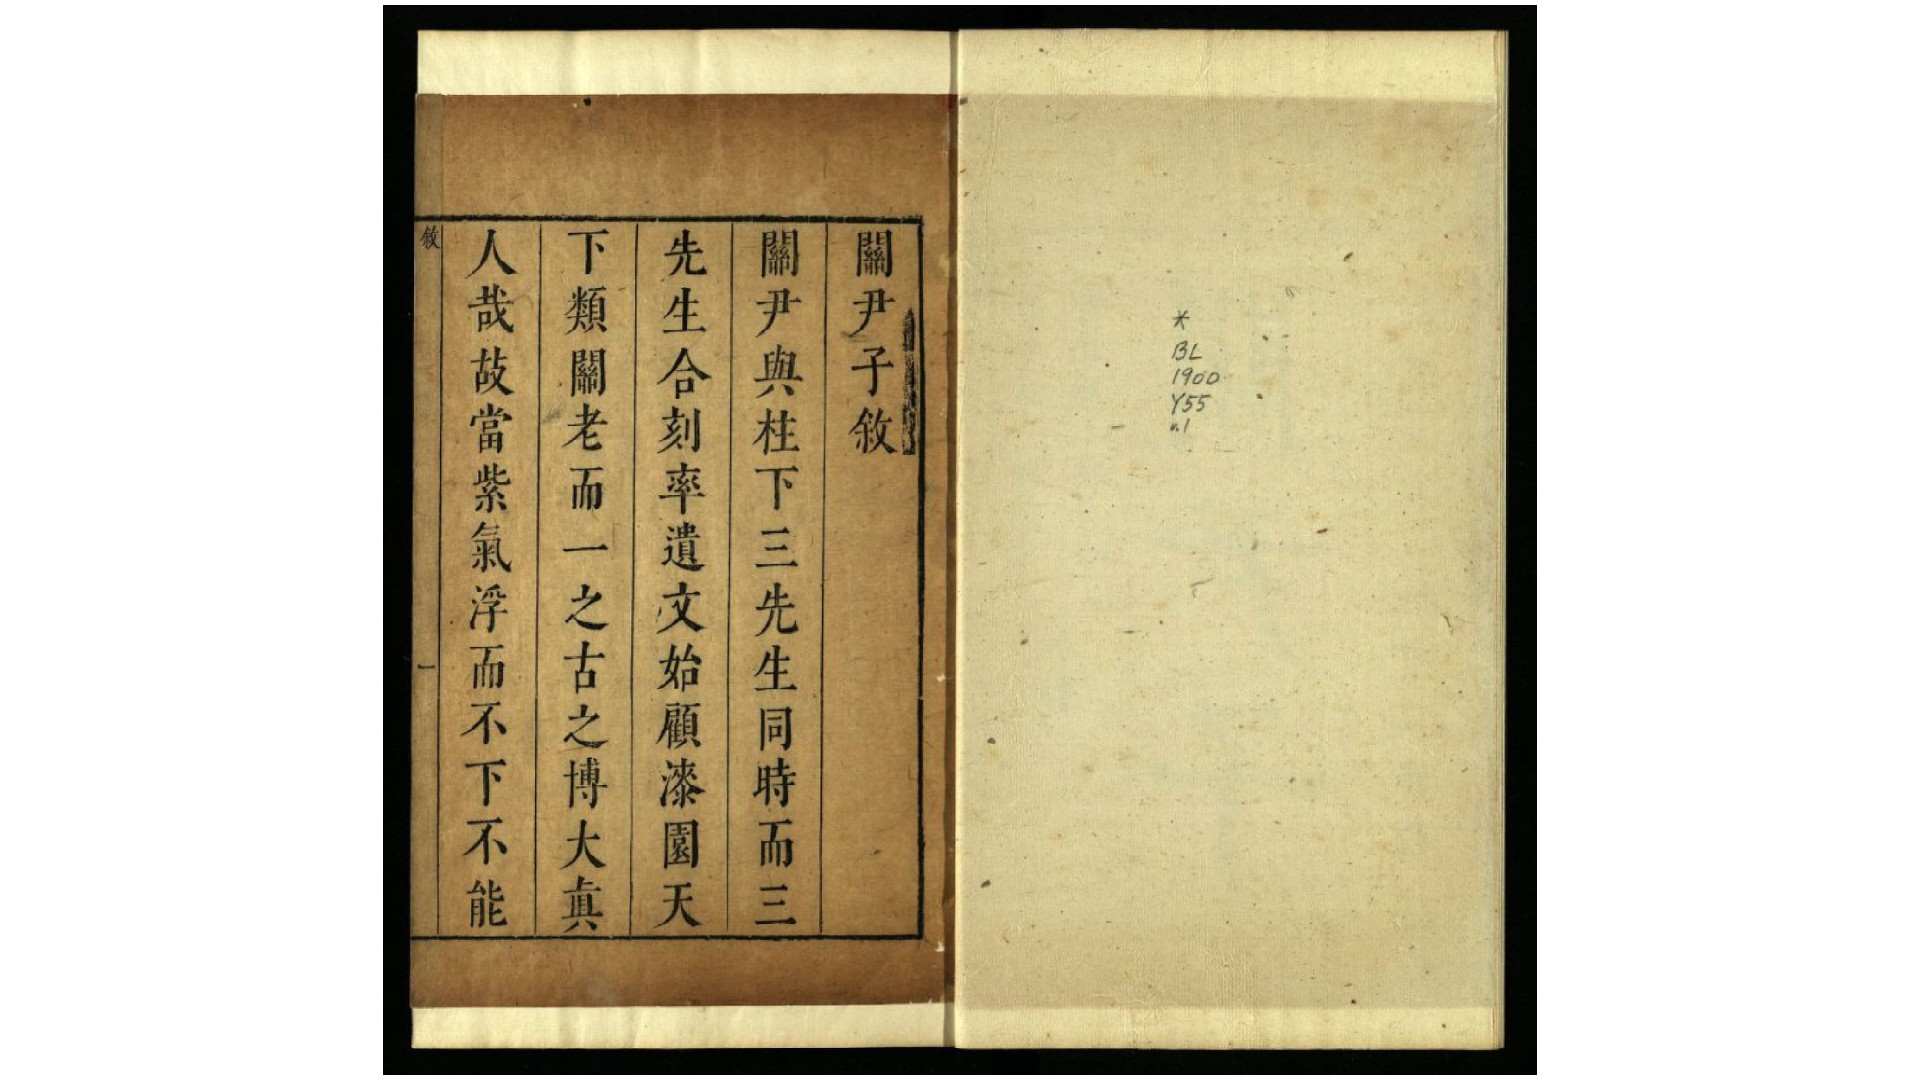 *
BL
1900
Y55
v.1
關尹子敘
關尹與柱下三先生同時而三
先生合刻率遺文始顧漆園天
下類關老而一之古之博大真
人哉故當紫氣浮而不下不能
敘
一